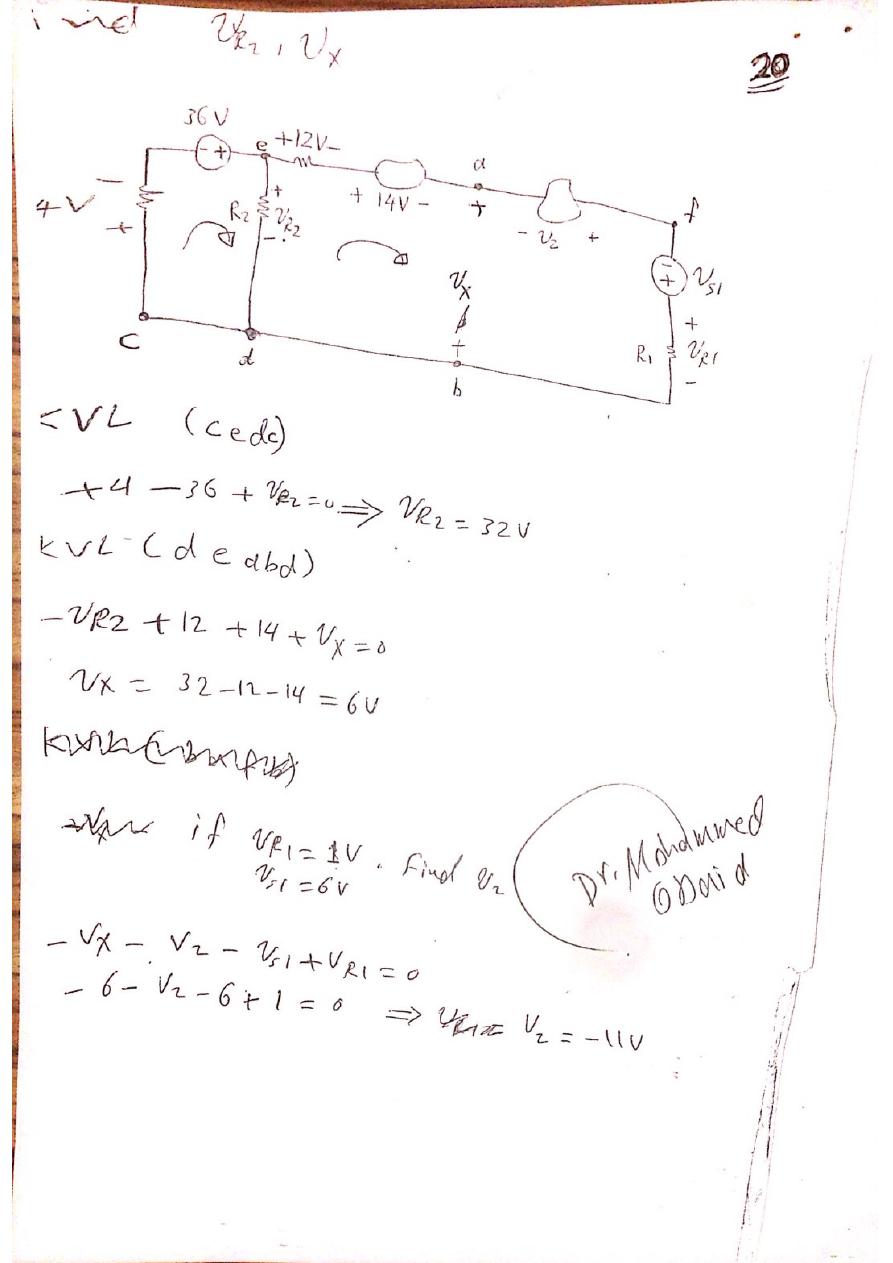 ind VR2, Vx
20
36 V
- +
e +12V-
a
+ 14V -
+
- V2 +
f
4V
-
+
R2
+
VR2
-
Vx
- +
VS1
+
VR1
-
R1
+
c
d
b
KVL (cedc)
+4 - 36 + VR2 = 0 ⇒ VR2 = 32V
KVL (deabd)
-VR2 + 12 + 14 + Vx = 0
Vx = 32 - 12 - 14 = 6V
if VR1 = 1V . Find V2
VS1 = 6V
Dr. Mohammed
Obaid
- Vx - V2 - VS1 + VR1 = 0
- 6 - V2 - 6 + 1 = 0 ⇒ V2 = -11V